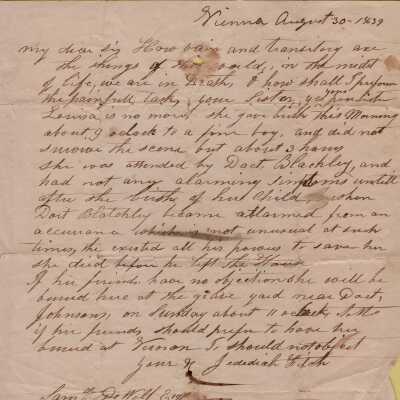 Vienna August 30 - 1839
My dear sir How vain and transitory are
the things of this world, in the midst
of life, we are in Death, O how shall I perform
the painfull task, your Sister, yes your
Louisa is no more she gave birth this Morning
about 9 oclock to a fine boy, and did not
survive the scene but about 3 hours
She was attended by Doct, Blachley, and
had not any alarming simtoms untill
after the birth of her Child, when
Doct Blatchley became allarmed from an
which is not unusual at such
times, he exerted all his powers to save her
she died before he left the House
If her friends have no objection she will be
buried here at the grave yard near Doct,
Johnsons, on Sunday about 11 oclock
if her friends should prefer to have her
buried at Vernon I should not object
Your Jedediah Fitch
Saml DeWolf Esqr